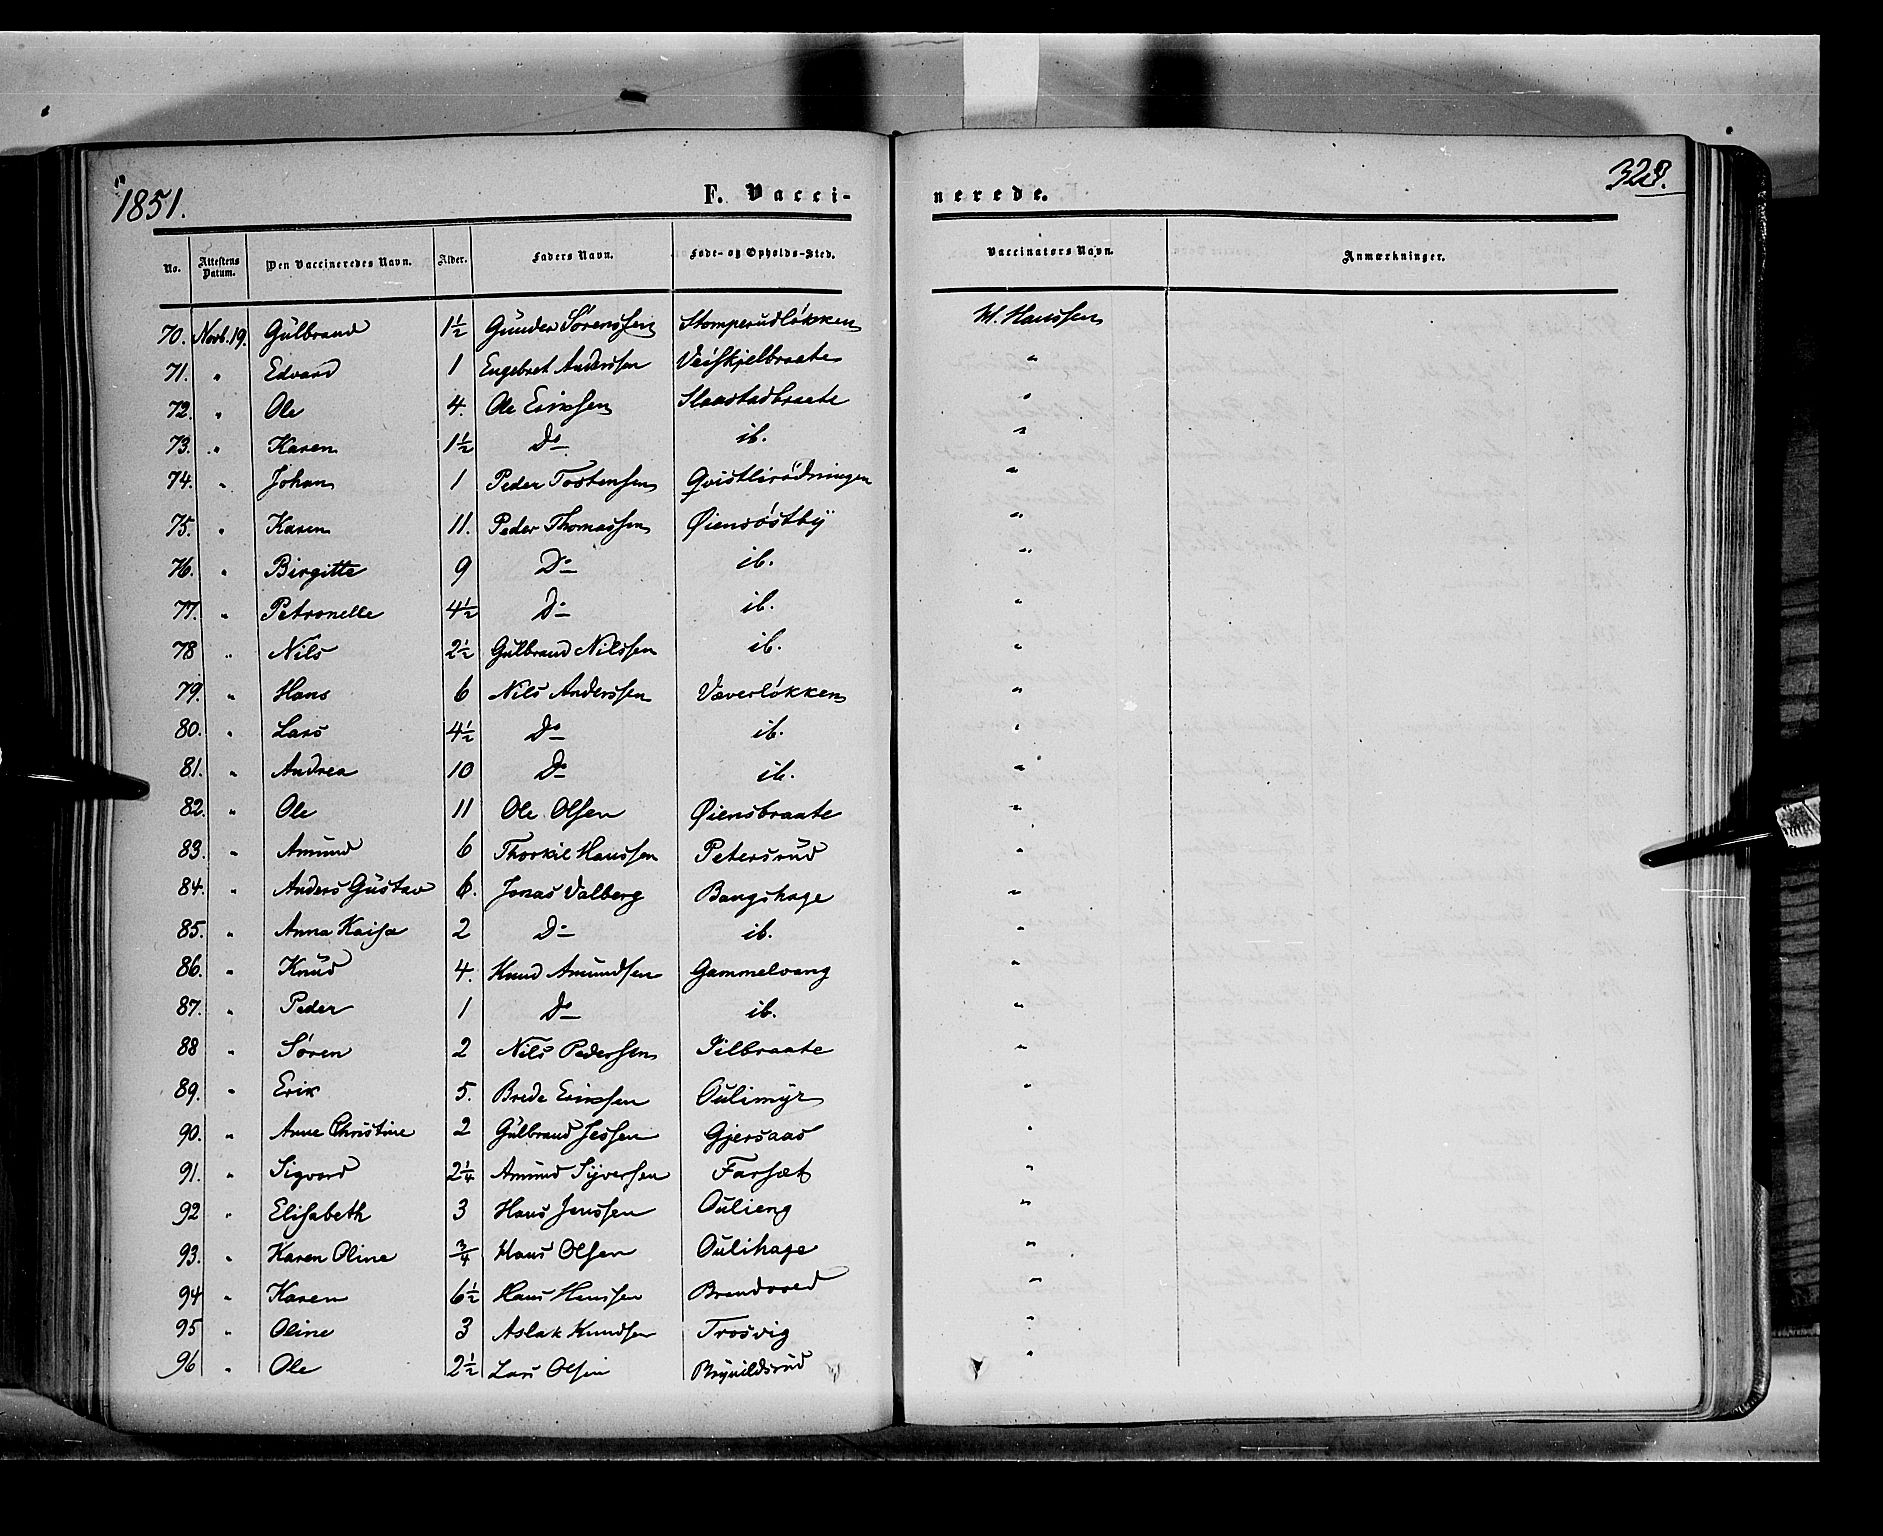 1851. F. Vacci- nerede. 323.
No. Attestens Datum. Den Vaccineredes Navn. Alder. Faders Navn. Føde- og Opholds-Sted. Vaccinators Navn. Anmærkninger.
70. Novb. 19. Gulbrand 1½ Gunder Sørenssen Stomperudløkken M. Hanssen
71. " Edvard 1 Engebret Anderssen Veiskjelbraate "
72. " Ole 4. Ole Erikssen Slaastadbraate "
73. " Karen 1½ Do ib. "
74. " Johan 1 Peder Tostensen Qvistlirødningen "
75. " Karen 11. Peder Thomassen Øiensøstby "
76. " Birgitte 9 Do ib. "
77. " Petronelle 4½ Do ib. "
78 " Nils 2½ Gulbrand Nilssen ib. "
79. " Hans 6 Nils Anderssen Væverløkken "
80. " Lars 4½ Do ib. "
81. " Andrea 10 Do ib. "
82. " Ole 11 Ole Olsen Øiensbraate "
83. " Amund 6 Thorkil Hanssen Petersrud "
84. " Anders Gustav 6. Jonas Valberg Bangshage "
85. " Anna Kaisa 2 Do ib. "
86. " Knud 4. Knud Amundsen Gammelvang "
87. " Peder 1 Do ib. "
88 " Søren 2 Nils Pedersen Pilbraate "
89. " Erik 5. Brede Erikssen Oulimyr "
90. " Anne Christine 2 Gulbrand Jessen Gjersaas "
91. " Sigvard 2¼ Amund Syversen Farsæt "
92 " Elisabeth 3 Hans Jenssen Oulieng "
93. " Karen Oline ¾ Hans Olsen Oulihage "
94 " Karen 6½ Hans Hanssen Brandvold "
95 " Oline 3 Aslak Knudsen Trosvig "
96 " Ole 2½ Lars Olsen Brynildsrud "